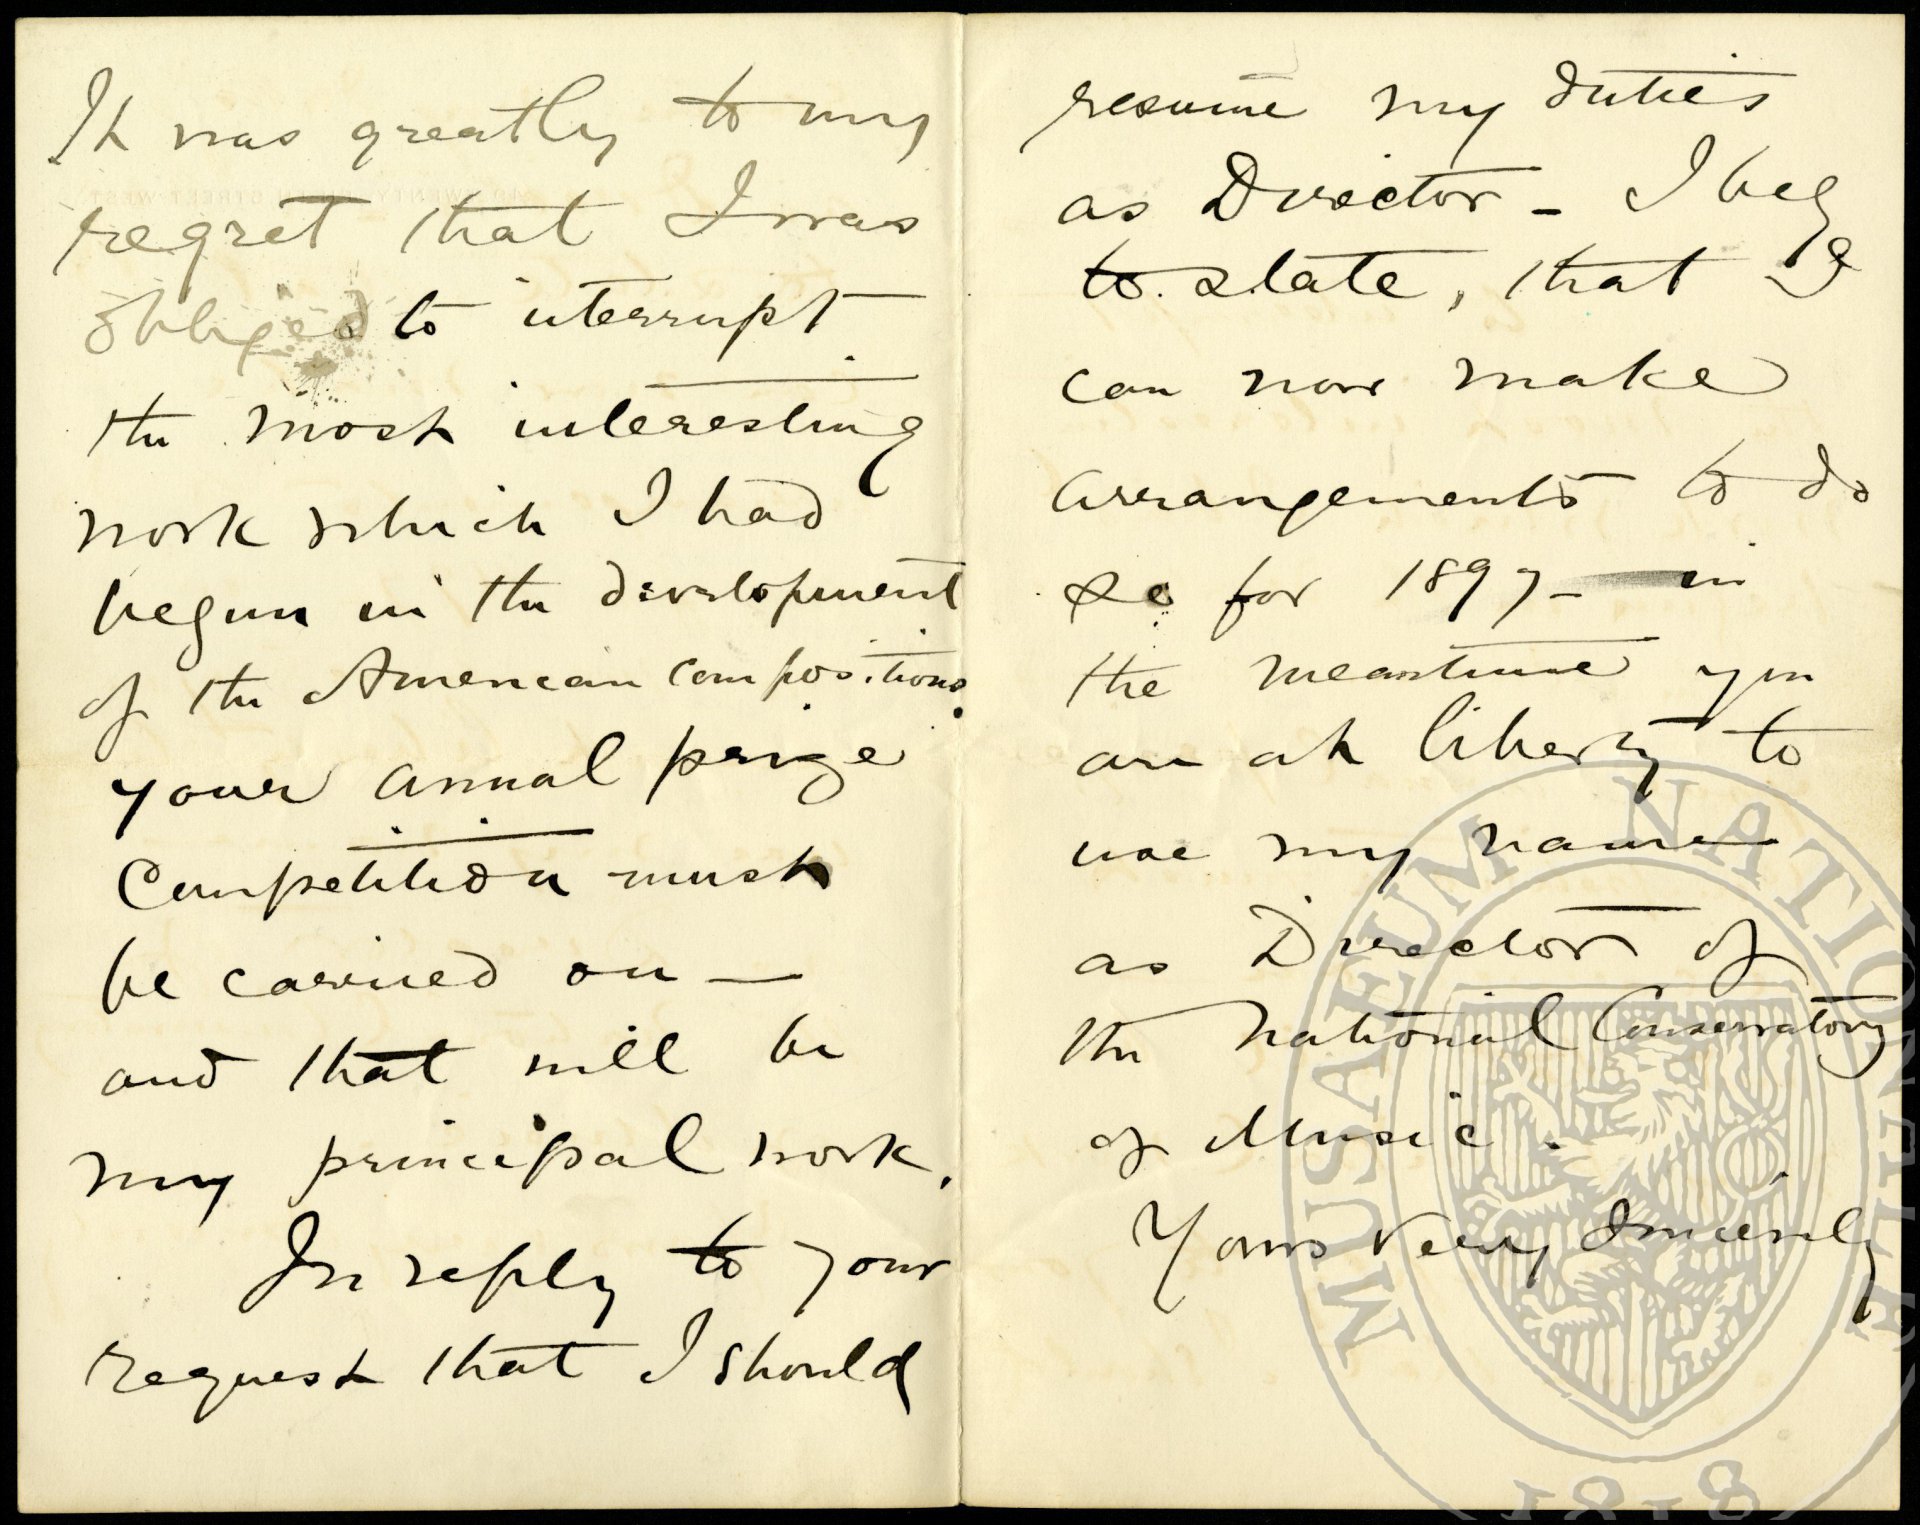 It was greatly to my
regret that I was
obliged to interrupt
the most interesting
work which I had
begun in the development
of the American compositions.
your annual prize
Competition must
be carried on —
and that will be
my principal work.
In reply to your
request that I should
resume my duties
as Director - I beg
to state, that I
can now make
arrangements to do
so for 1897 - in
the meantime you
are at liberty to
use my name
as Director of
the National Conservatory
of Music.
Yours very sincerely
MUSAEUM NATIONALE
1818